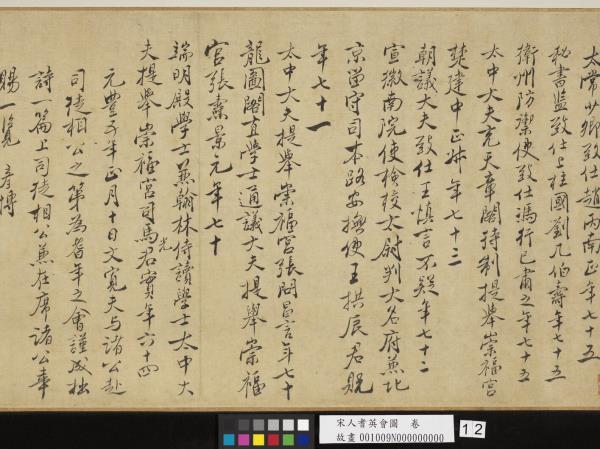 太常少卿致仕趙丙南正年七十五
秘書監致仕上柱國劉几伯壽年七十五
衛州防禦使致仕馮行己肅之年七十五
太中大夫充天章閣待制提舉崇福宮
楚建中正叔年七十三
朝議大夫致仕王慎言不疑年七十二
宣徽南院使檢挍太尉判大名府兼北
京留守司本路安撫使王拱辰君貺
年七十一
太中大夫提舉崇福宮張問昌言年七十
龍圖閣直學士通議大夫提舉崇福
宮張燾景元年七十
端明殿學士兼翰林侍讀學士太中大
夫提舉崇福宮司馬君實年六十四
光
元豐五年正月十日文寬夫与諸公赴
司徒相公之第為耆年之會謹成拙
詩一篇上司徒相公兼在席諸公幸
賜一覽 彦博
宋人耆英會圖 卷
故畫 001009N000000000
12